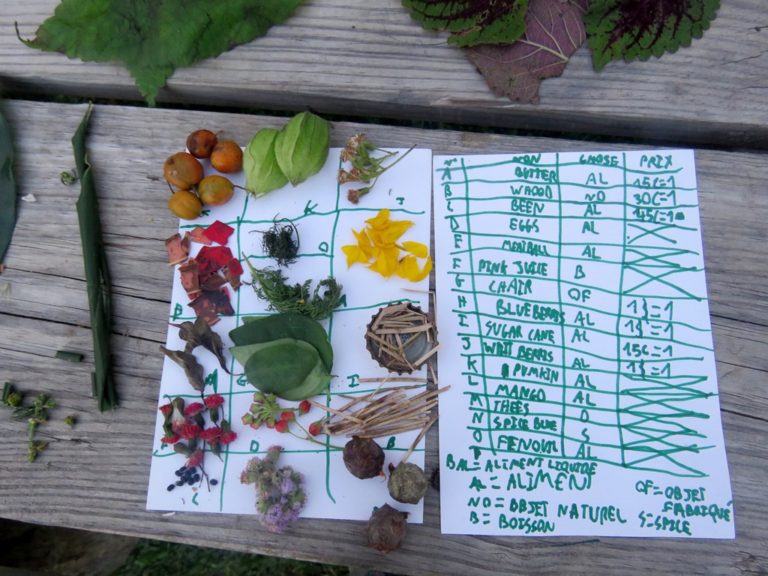 N° NON CHOSE PRIX
A BUTTER AL 15C=1
B WHOOD NO 30C=1
C BEEN AL 45C=1
D EGGS AL
E MEATBALL AL
F PINK JUICE B
G CHAIR OF
H BLUEBERRIS AL 1J=1
I SUGAR CANE AL 1J=1
J WHIT BERRIS AL 15C=1
K PUMKIN AL 1J=1
L MANGO AL
M THEES O
N SPICE BLUE S
O FENOUIL AL
P
BAL=ALIMENT LIQUIDE
AL = ALIMENT
OF=OBJET FABRIQUÉ
NO=OBJET NATUREL
B = BOISSON S=SPICE
K
J
O
I
D
B